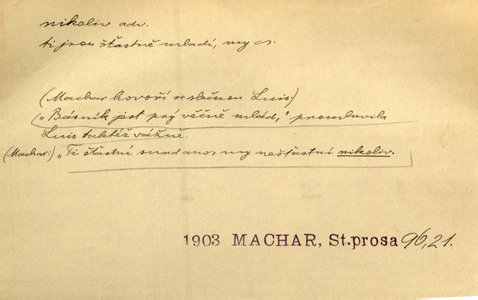 nikoliv adv.
ti jsou šťastně mladí, my n.
(Machar hovoří se slečnou Luis:)
"Básník jest prý věčně mlád," promluvila
Luis taktéž vážně.
(Machar:) "Ti šťastní snad ano, my nešťastní nikoliv.
1903 MACHAR, St.prosa 96,21.